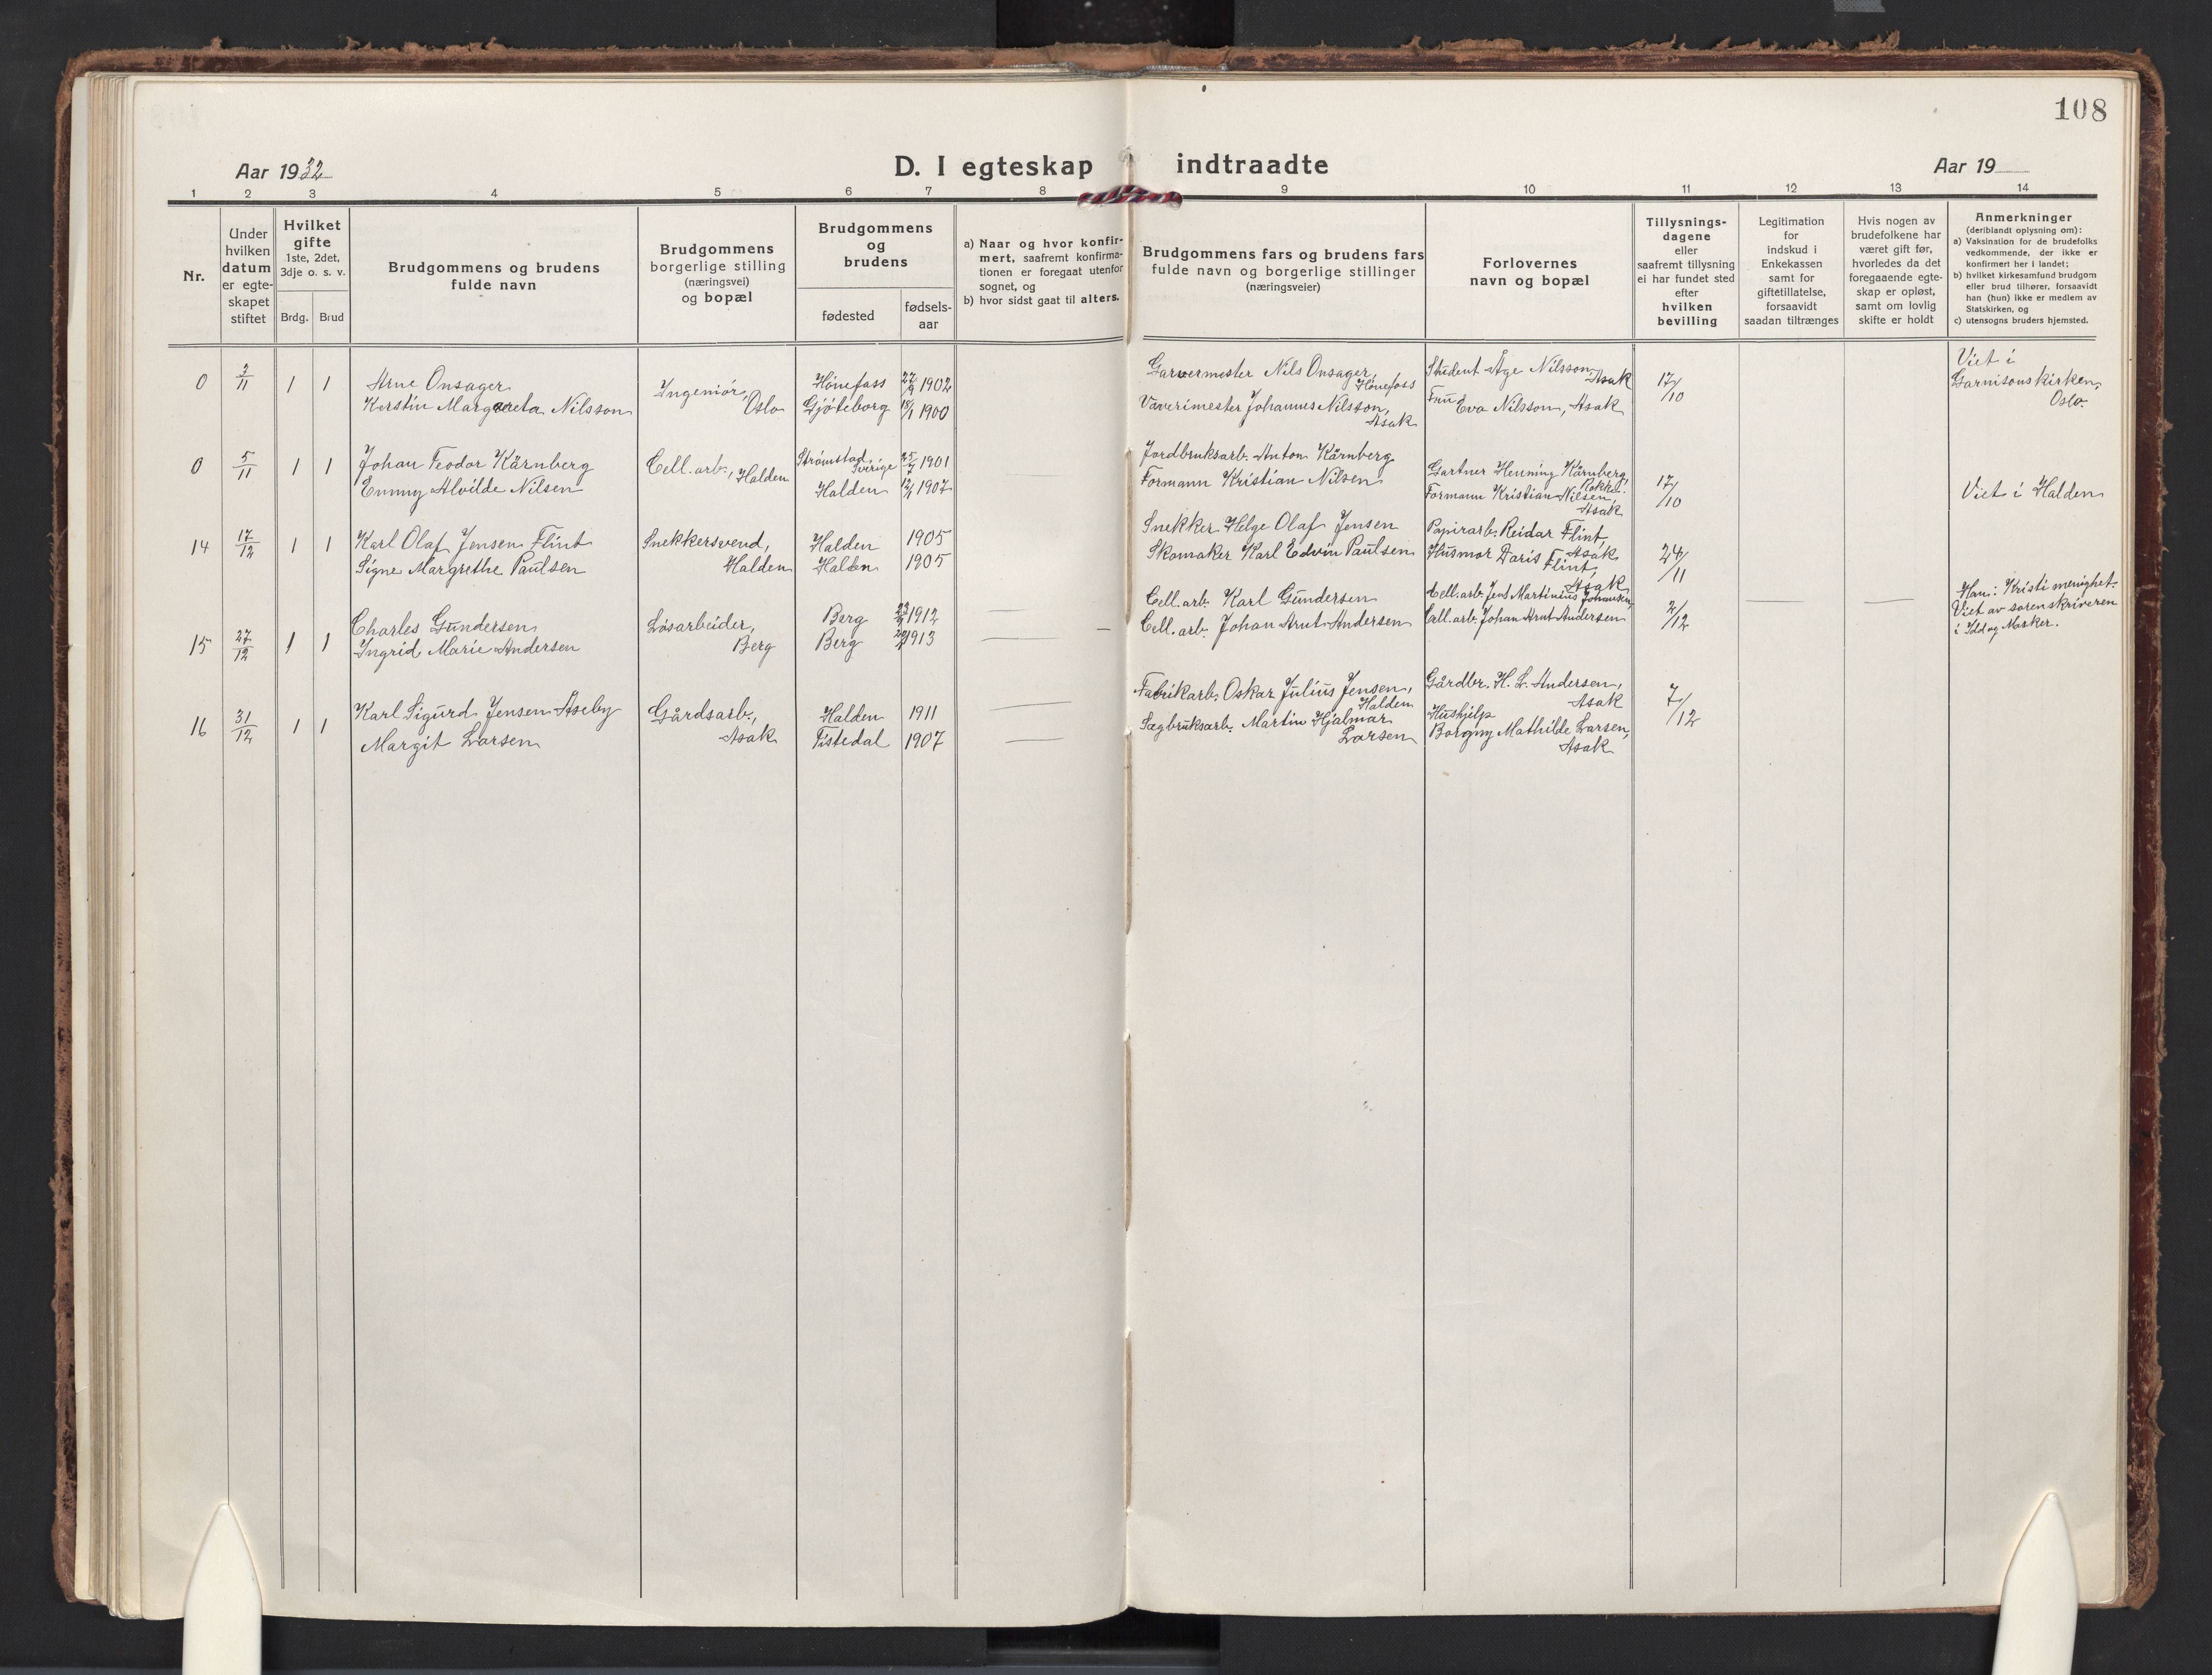 108
Aar 1932
D. I egteskap indtraadte
Aar 19
1 2 3 4 5 6 7 8 9 10 11 12 13 14
Nr.
Under
hvilken
datum
er egte-
skapet
stiftet
Hvilket
gifte
1ste, 2det,
3dje o. s. v.
Brdg. Brud
Brudgommens og brudens
fulde navn
Brudgommens
borgerlige stilling
(næringsvei)
og bopæl
Brudgommens
og
brudens
fødested
fødsels-
aar
a) Naar og hvor konfir-
mert, saafremt konfirma-
tionen er foregaat utenfor
sognet, og
b) hvor sidst gaat til alters.
Brudgommens fars og brudens fars
fulde navn og borgerlige stillinger
(næringsveier)
Forlovernes
navn og bopæl
Tillysnings-
dagene
eller
saafremt tillysning
ei har fundet sted
efter
hvilken
bevilling
Legitimation
for
indskud i
Enkekassen
samt for
giftetillatelse,
forsaavidt
saadan tiltrænges
Hvis nogen av
brudefolkene har
været gift før,
hvorledes da det
foregaaende egte-
skap er opløst,
samt om lovlig
skifte er holdt
Anmerkninger
(deriblandt oplysning om):
a) Vaksination for de brudefolks
vedkommende, der ikke er
konfirmert her i landet;
b) hvilket kirkesamfund brudgom
eller brud tilhører, forsaavidt
han (hun) ikke er medlem av
Statskirken, og
c) utensogns bruders hjemsted.
0 3/11 1 1
Arne Onsager
Kerstin Margareta Nilsson
Ingeniør,
Oslo
Hönefoss 1902
Gjöteborg 18/1 1900
Garvermester Nils Onsager,
Hönefoss
Väverimester Johannes Nilsson,
Asak
Student Åge Nilsson,
Asak
Fru Eva Nilsson, Asak
17/10
Viet i
Garnisonskirken,
Oslo.
0 5/11 1 1
Johan Teodor Kärnberg
Emmy Alvilde Nilsen
Cell. arb., Halden
Strømstad,
Sverige 1901
Halden 1907
Jordbruksarb. Anton Kärnberg
Formann Kristian Nilsen
Gartner Henning Kärnberg,
Rokke.
Formann Kristian Nilsen,
Asak
17/10
Viet i Halden
14 17/12 1 1
Karl Olaf Jensen Flint
Signe Margrethe Paulsen
Snekkersvend,
Halden
Halden 1905
Halden 1905
Snekker Helge Olaf Jensen
Skomaker Karl Edvin Paulsen
Papirarb. Reidar Flint,
Asak
Husmor Doris Flint,
Asak
24/11
15 27/12 1 1
Charles Gundersen
Ingrid Marie Andersen
Løsarbeider,
Berg
Berg 1912
Berg 1913
Cell. arb. Karl Gundersen
Cell. arb. Johan Arnt Andersen
Cell. arb. Jens Martinius Johansen
Cell. arb. Johan Arnt Andersen
2/12
Han: Kristi menighet.
Viet av sorenskriveren
i Idd og Marker.
16 31/12 1 1
Karl Sigurd Jensen Aseby
Margit Larsen
Gårdsarb.,
Asak
Halden 1911
Tistedal 1907
Fabrikarb. Oskar Julius Jensen,
Halden
Sagbruksarb. Martin Hjalmar
Larsen
Gårdbr. H. L. Andersen,
Asak
Hushjelp
Borgny Mathilde Larsen,
Asak
7/12